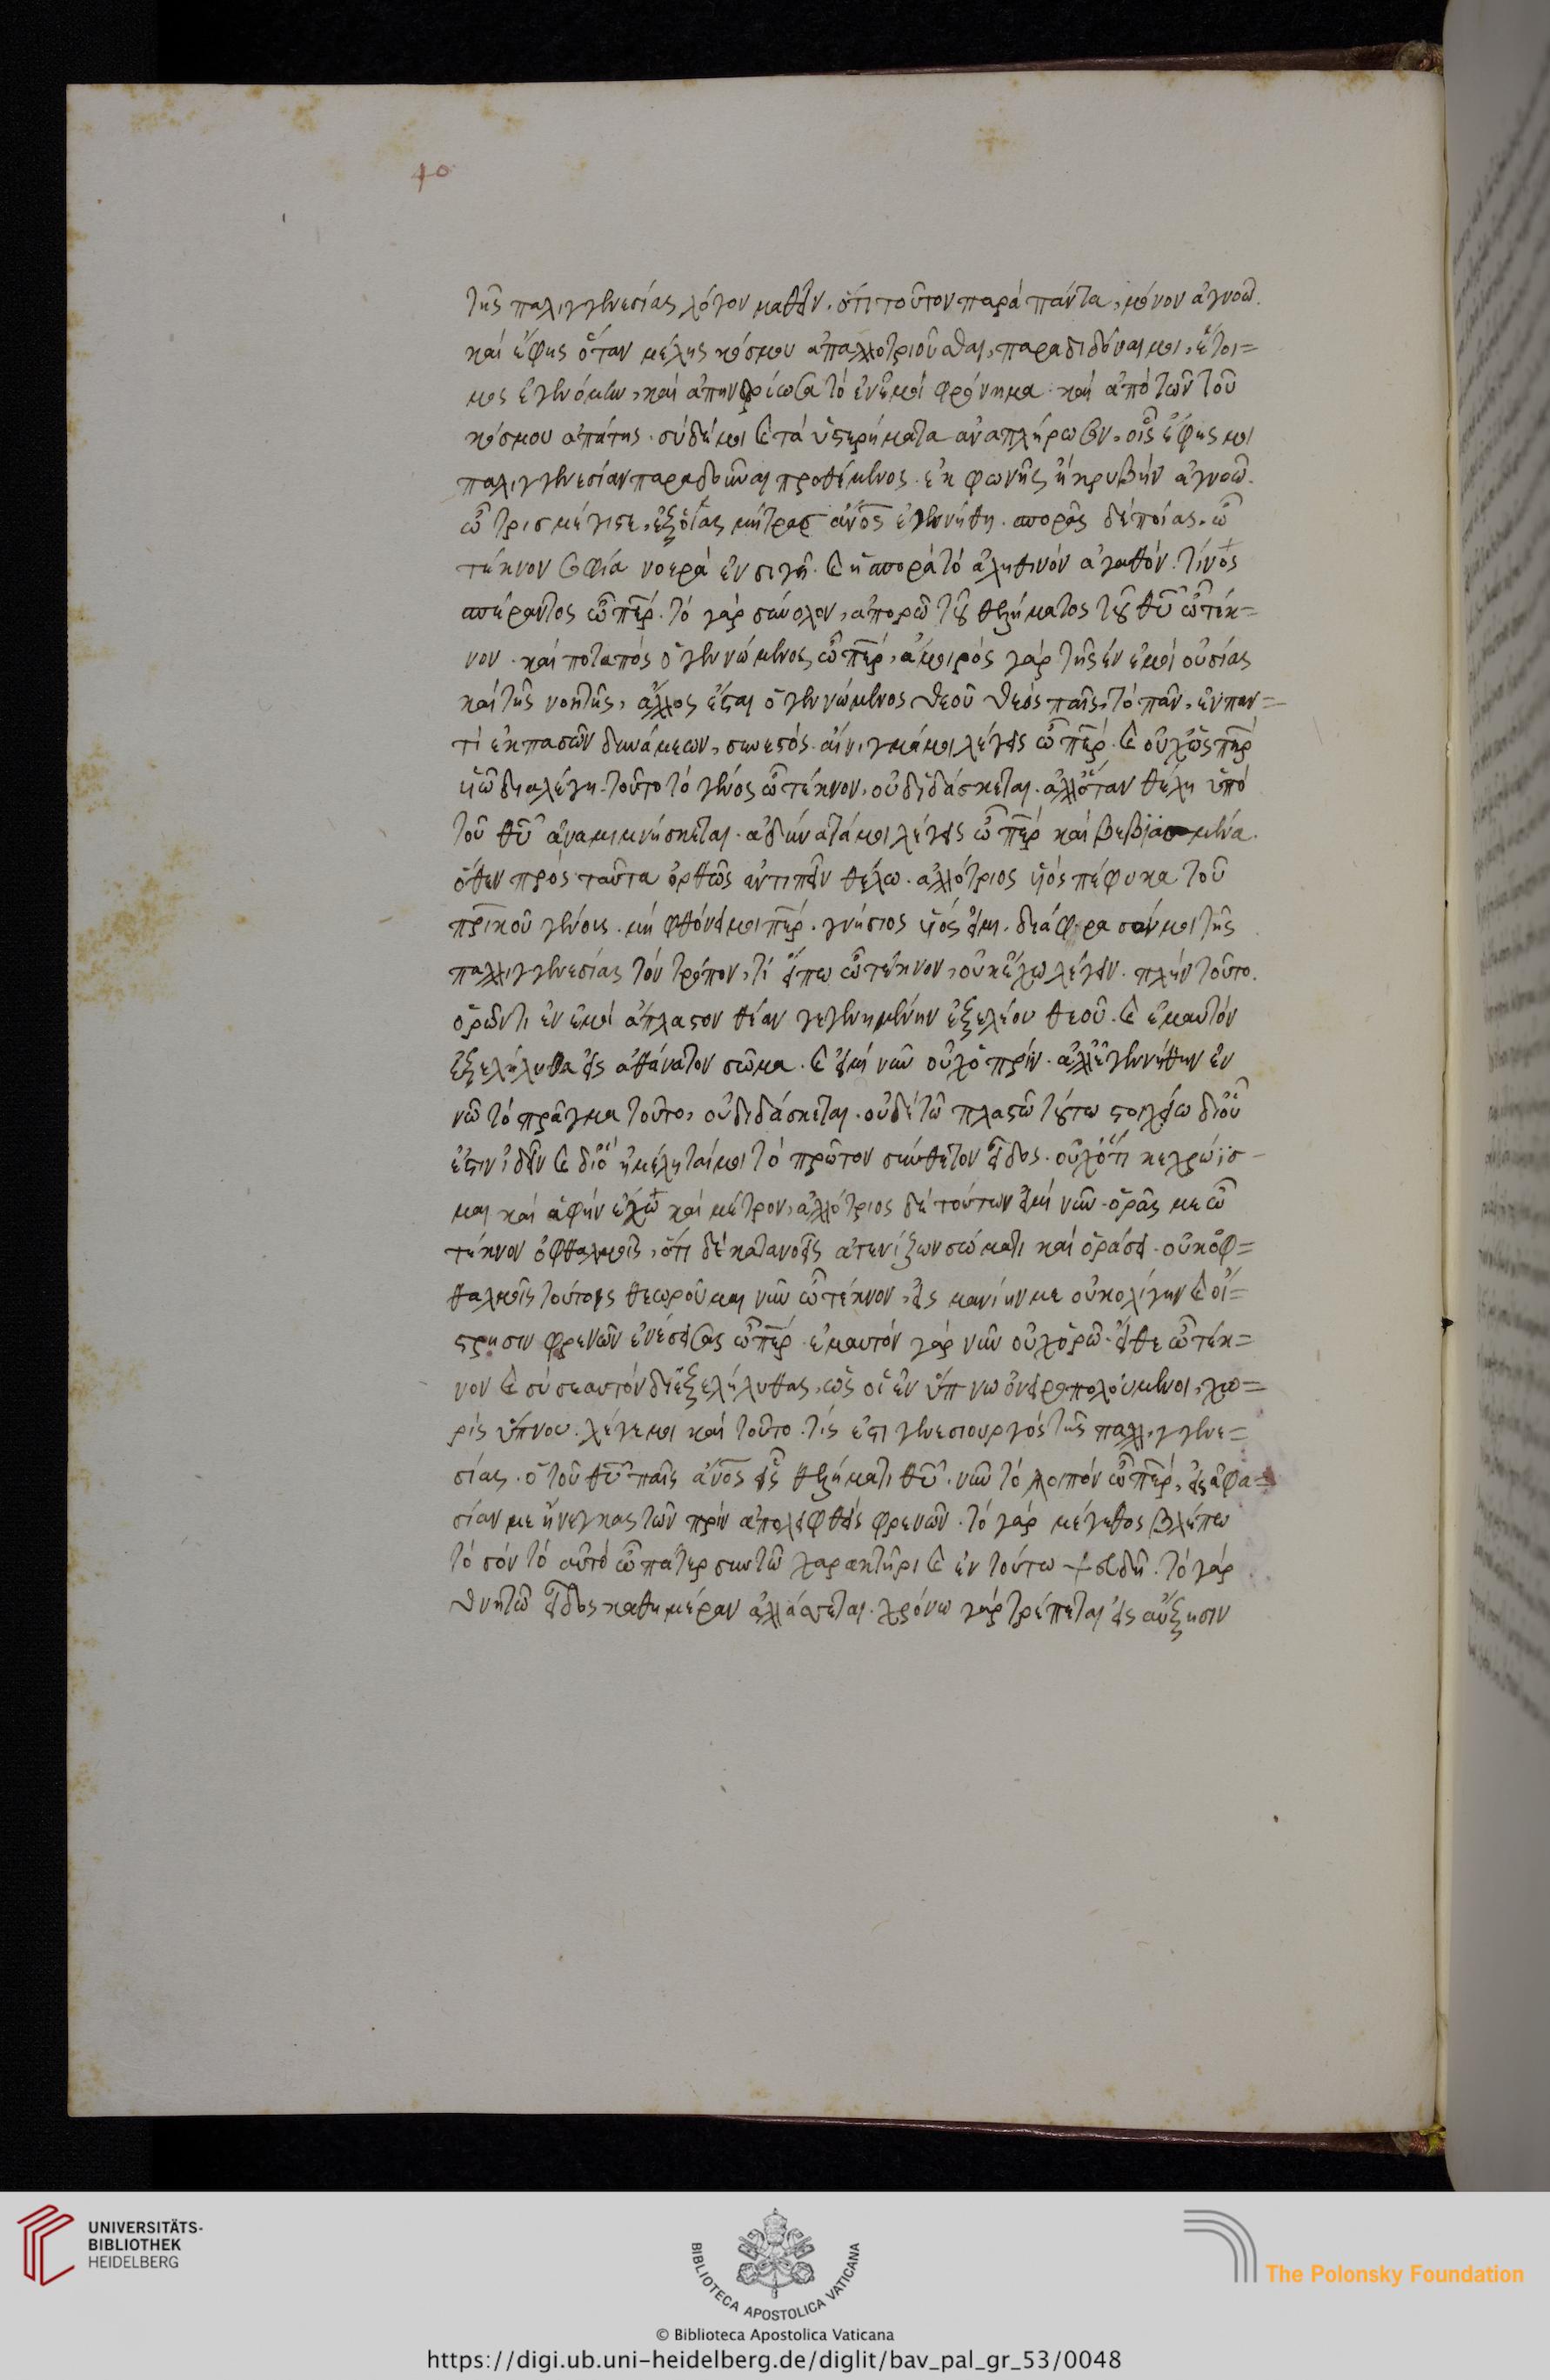 40
τῆς παλιγγενεσίας λόγον μαθεῖν. ὅτι τοῦτον παρὰ πάντα, μόνον ἀγνοῶ.
καὶ ἔφης ὅταν μέλης κόσμου ἀπαλλοτριοῦσθαι, παραδιδόναι μοι, ἕτοι=
μος ἐγενόμην, καὶ ἀπηνδρίωσα τὸ ἐν ἐμοὶ φρόνημα. καὶ ἀπὸ τῶν τοῦ
κόσμου ἀπάτης. σὺ δέ μοι καὶ τὰ ὑστερήματα ἀναπλήρωσον, οἷς ἔφης μοι
παλιγγενεσίαν παραδοῦναι προθέμενος. ἐκ φωνῆς ἢ κρυβὴν ἀγνοῶ.
ὦ τρισμέγιστε, ἐξ οἵας μήτρας ἄνος ἐγεννήθη. σπορᾶς δὲ ποίας. ὦ
τέκνον σοφία νοερὰ ἐν σιγῇ. καὶ ἡ σπορὰ τὸ ἀληθινὸν ἀγαθόν. τίνος
σπείραντος ὦ περ. τὸ γὰρ σύνολον, ἀπορῶ τοῦ θελήματος τοῦ θυ ὦ τέκ=
νον. καὶ ποταπὸς ὁ γεννώμενος ὦ περ, ἄμοιρος γὰρ τῆς ἐν ἐμοὶ οὐσίας
καὶ τῆς νοητῆς, ἄλλος ἔσται ὁ γεννώμενος θεοῦ θεὸς παῖς, τὸ πᾶν, ἐν παν=
τὶ ἐκ πασῶν δυνάμεων, συνεστός. αἴνιγμά μοι λέγεις ὦ περ. καὶ οὐχ ὡς πηρ
υἱῶ διαλέγη. τοῦτο τὸ γένος ὦ τέκνον, οὐ διδάσκεται. ἀλλ' ὅταν θέλη ὑπὸ
τοῦ θυ ἀναμιμνήσκεται. ἀδύνατά μοι λέγεις ὦ περ καὶ βεβιασμένα.
ὅθεν πρὸς ταῦτα ὀρθῶς ἀντιπεῖν θέλω. ἀλλότριος υἱὸς πέφυκα τοῦ
πρικοῦ γένους. μὴ φθόνει μοι περ. γνήσιος υἱός εἰμι. διάφρασόν μοι τῆς
παλλιγγενεσίας τὸν τρόπον, τί εἴπω ὦ τέκνον, οὐκ ἔχω λέγειν. πλὴν τοῦτο.
ὁρῶν τι ἐν ἐμοὶ ἄπλαστον θέαν γεγενημένην ἐξ ἐλέου θεοῦ. καὶ ἐμαυτὸν
ἐξελήλυθα εἰς ἀθάνατον σῶμα. καὶ εἰμὶ νῦν οὐχ ὁ πρίν. ἀλλ' ἐγεννήθην ἐν
νῶ τὸ πρᾶγμα τοῦτο, οὐ διδάσκεται. οὐδὲ τῶ πλαστῶ τούτω στοιχείω δι' οὗ
ἔστιν ἰδεῖν καὶ διὸ ἠμέληταί μοι τὸ πρῶτον σύνθετον εἶδος. οὐχ ὅτι κεχρώϊσ-
μαι καὶ ἁφὴν ἔχω καὶ μέτρον, ἀλλότριος δὲ τούτων εἰμὶ νῦν. ὁρᾶς με ὦ
τέκνον ὀφθαλμοῖς, ὅτι δὲ κατανοεῖς ἀτενίζων σώματι καὶ ὁράσει. οὐκ ὀφ=
θαλμοῖς τούτοις θεωροῦμαι νῦν ὦ τέκνον, εἰς μανίην με οὐκ ὀλίγην καὶ οἴ=
στρησιν φρενῶν ἐνέσεισας ὦ περ. ἐμαυτὸν γὰρ νῦν οὐχ ὁρῶ. εἴθε ὦ τέκ=
νον καὶ σὺ σεαυτὸν διεξελήλυθας, ὡς οἱ ἐν ὕπνω ὀνειροπολούμενοι, χω=
ρὶς ὕπνου. λέγε μοι καὶ τοῦτο. τίς ἐστι γενεσιουργὸς τῆς παλλιγγενε=
σίας. ὁ τοῦ θυ παῖς ἄνος εἷς θελήματι θυ. νῦν τὸ λοιπὸν ὦ περ, εἰς ἀφα=
σίαν με ἤνεγκας τῶν πρὶν ἀπολειφθεὶς φρενῶν. τὸ γὰρ μέγεθος βλέπω
τὸ σὸν τὸ αὐτὸ ὦ πάτερ σὺν τῶ χαρακτῆρι καὶ ἐν τούτω ψεύδη. τὸ γὰρ
θνητῶ εἶδος καθημέραν ἀλλάσσεται. χρόνω γὰρ τρέπεται εἰς αὔξησιν
UNIVERSITÄTS-
BIBLIOTHEK
HEIDELBERG
BIBLIOTECA APOSTOLICA VATICANA
The Polonsky Foundation
© Biblioteca Apostolica Vaticana
https://digi.ub.uni-heidelberg.de/diglit/bav_pal_gr_53/0048